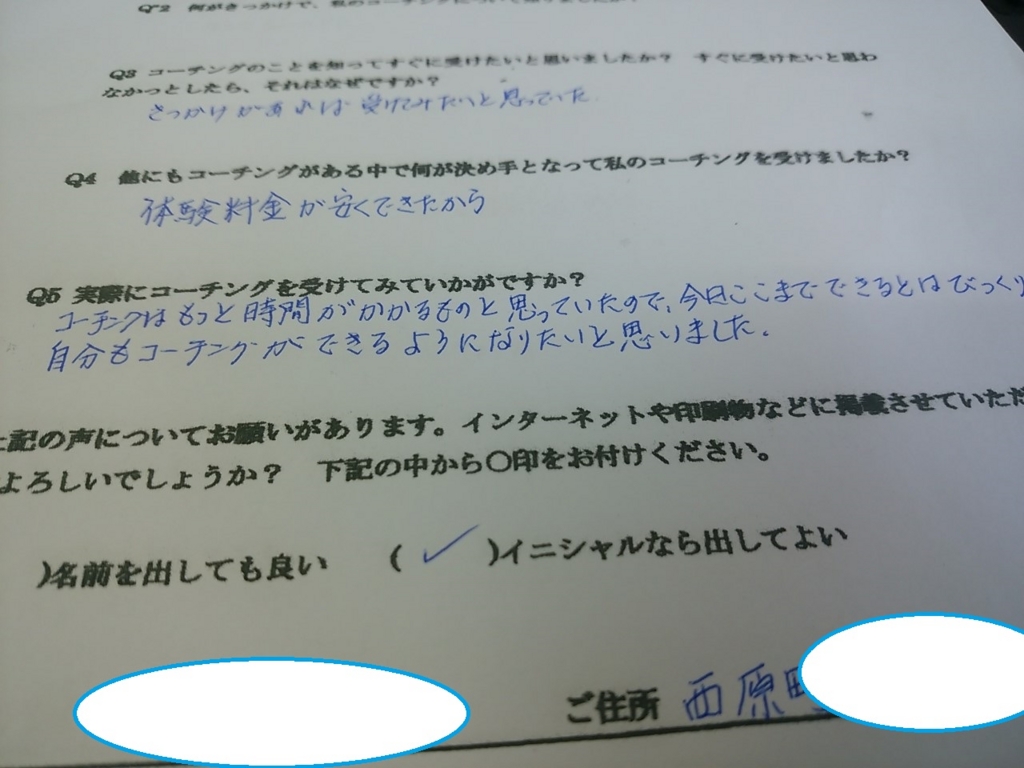 Q2 何がきっかけで、私のコーチングについて知りましたか？
Q3 コーチングのことを知ってすぐに受けたいと思いましたか？ すぐに受けたいと思わ
なかっとしたら、それはなぜですか？
きっかけがあれば 受けてみたいと思っていた
Q4 他にもコーチングがある中で何が決め手となって私のコーチングを受けましたか？
体験料金が安くできたから
Q5 実際にコーチングを受けてみていかがですか？
コーチングはもっと時間がかかるものと思っていたので、今日ここまでできるとはびっくり
自分もコーチングができるようになりたいと思いました。
上記の声についてお願いがあります。インターネットや印刷物などに掲載させていただ
よろしいでしょうか？ 下記の中から〇印をお付けください。
)名前を出しても良い ( ✓ )イニシャルなら出してよい
ご住所 西原町